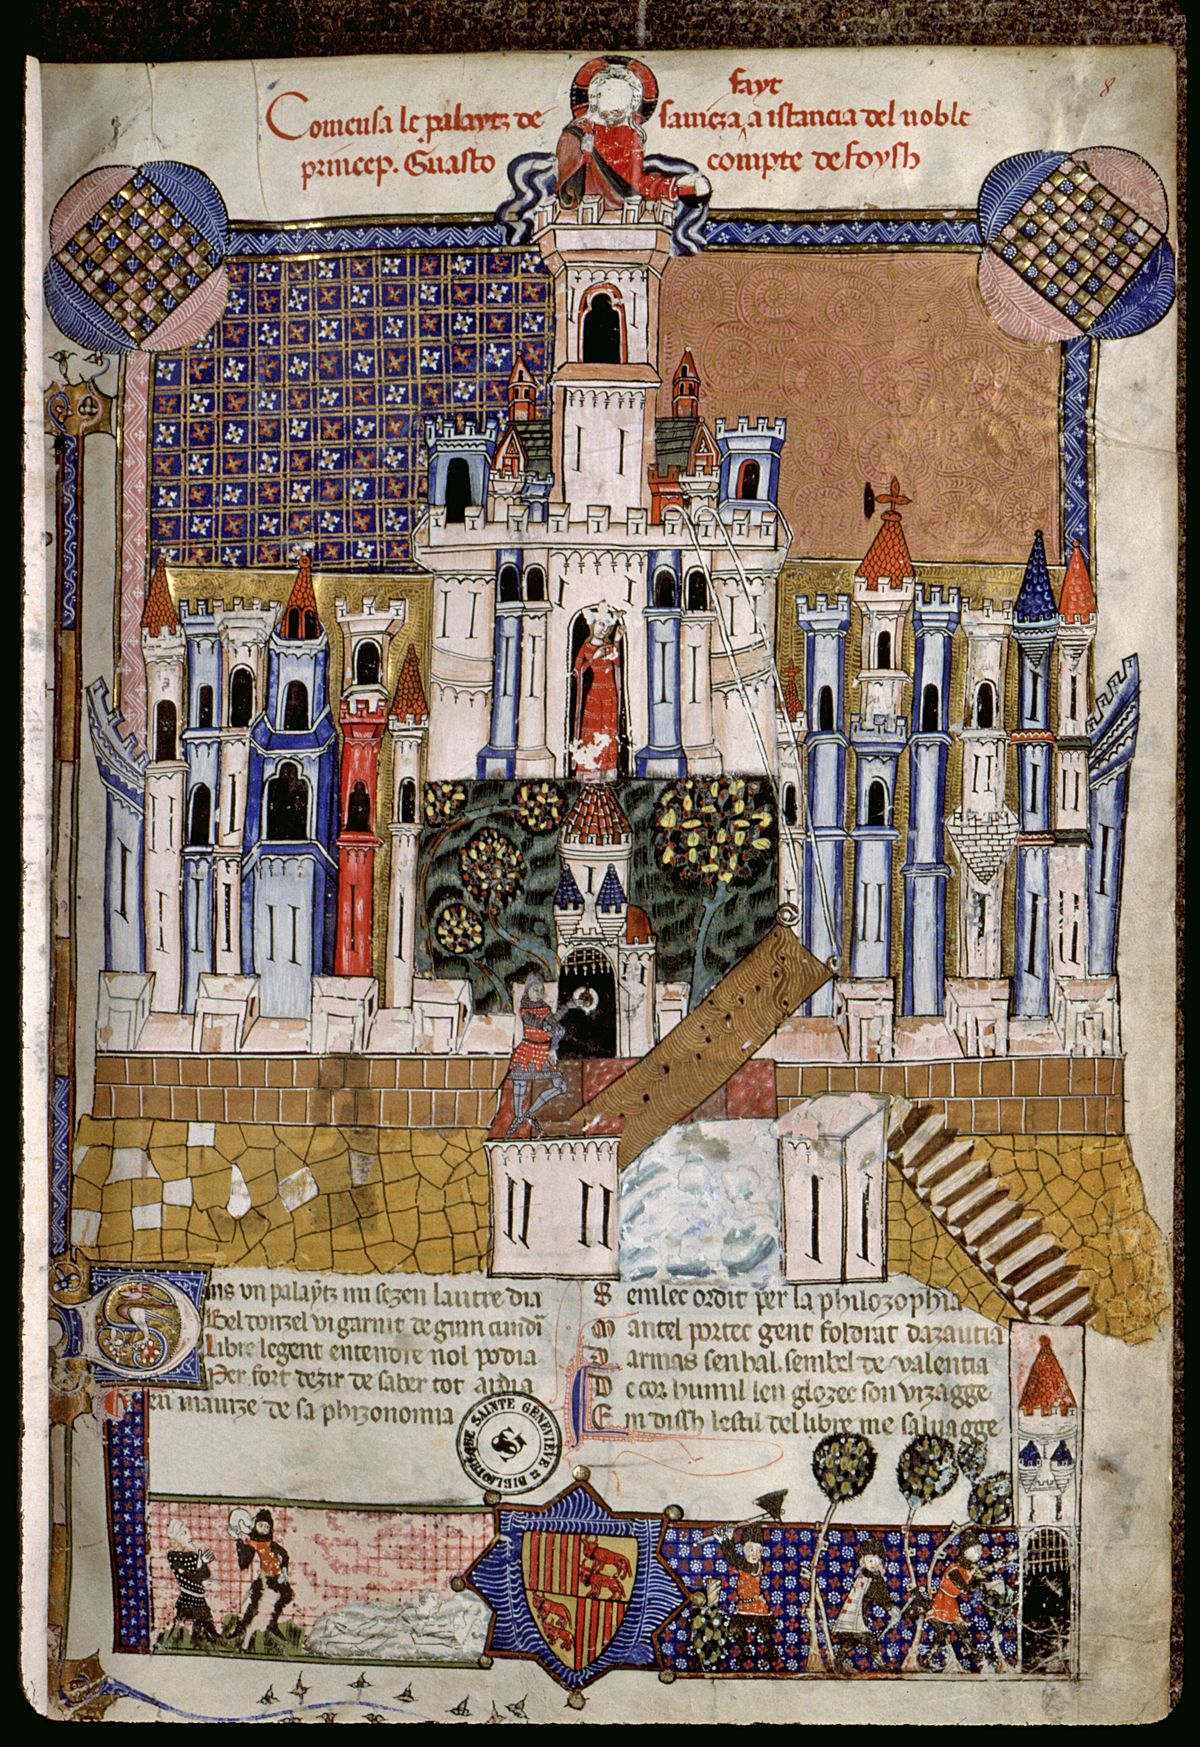 fayt
Comensa le palaytz de savieza, a istancia del noble
princep. Guasto compte de foysh
8
ins un palaytz mi sezen lautre dia
Bel donzel vi garnit de
Libre legent entendre nol podia
Per fort dezir de saber tot
en maneze de sa phizonomia
Semlec ordit per la philozophia
Mantel portec gent foldrat dazautia
Darmas senhal. sembel de valentia
De cor humil len glozec son vizagge
En dissh lestil del libre me salvagge
BIBLIOTHEQUE SAINTE GENEVIEVE
SG